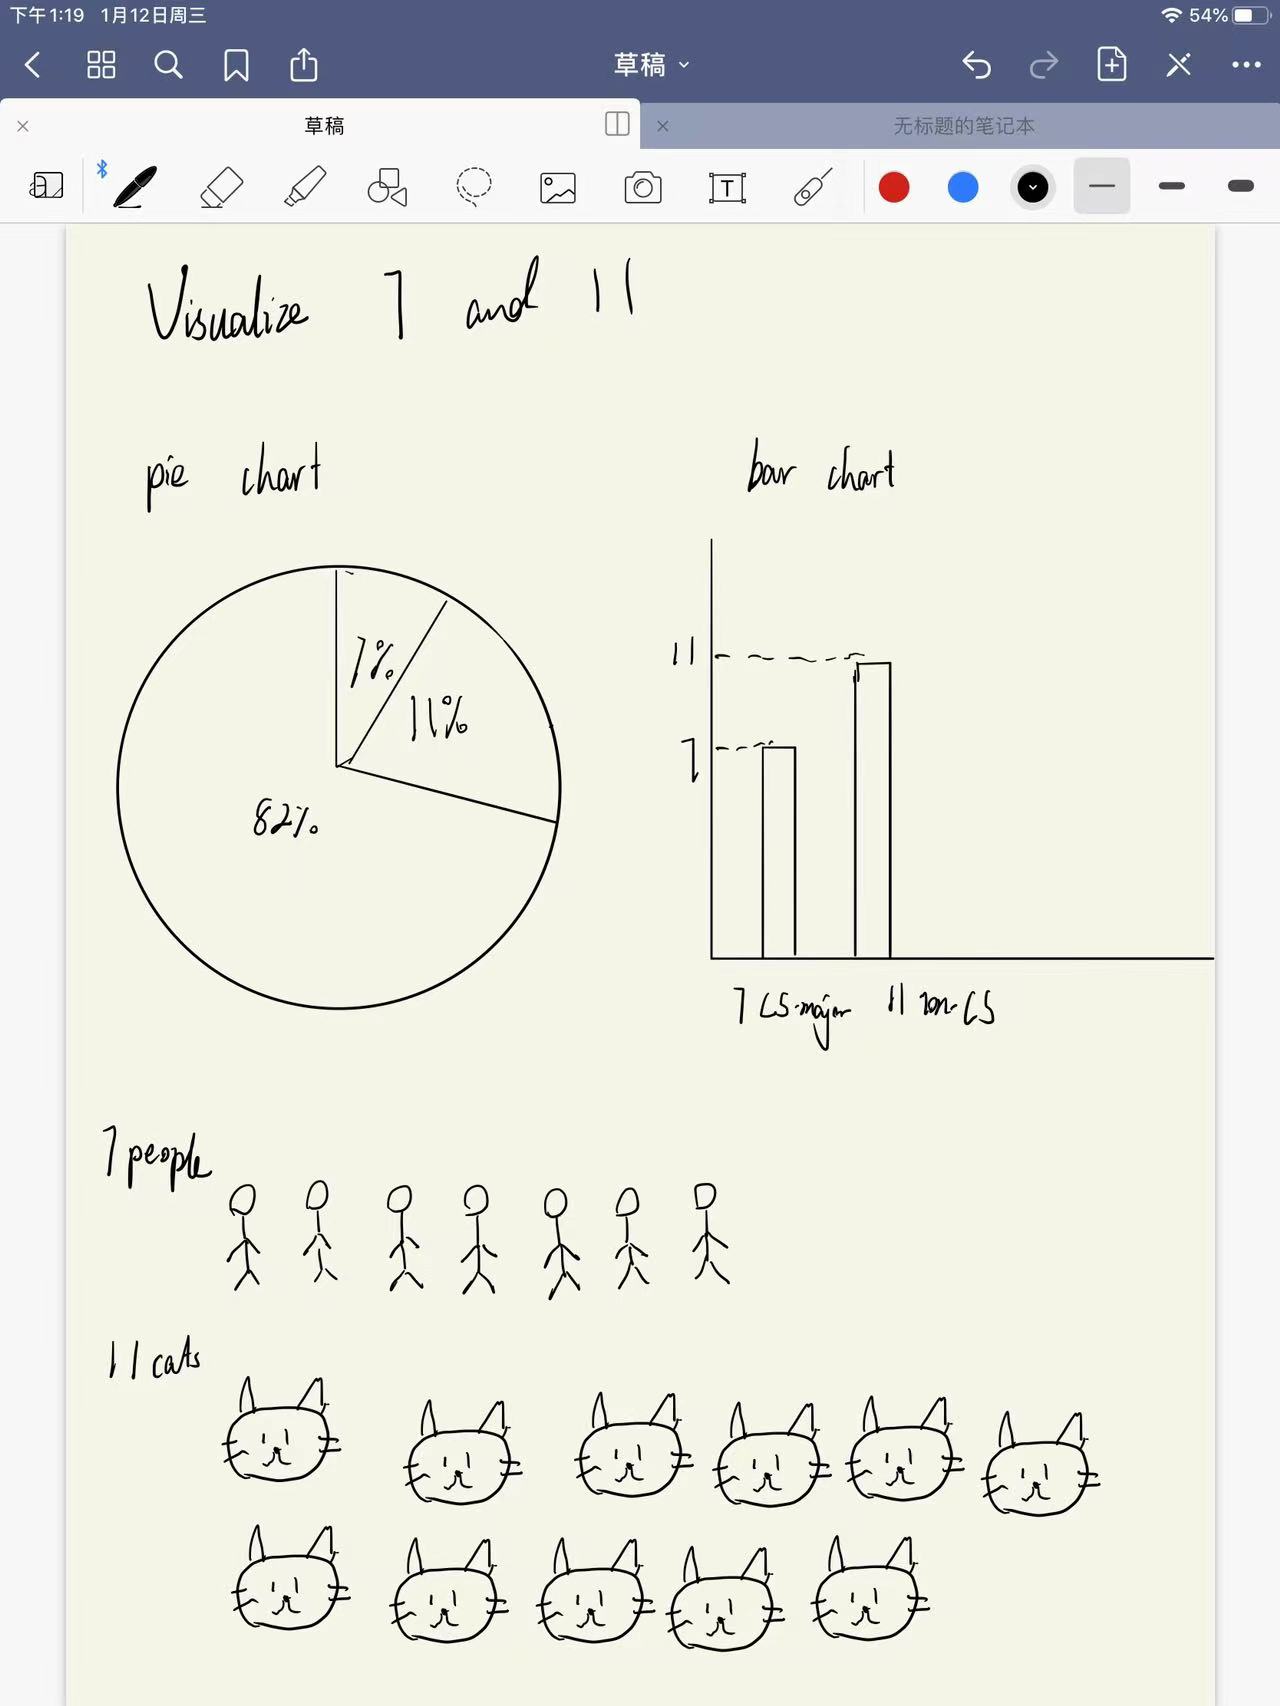 下午1:19 1月12日周三 54%
草稿
草稿 无标题的笔记本
T
Visualize 7 and 11
pie chart
bar chart
7%
11%
82%
11
7
7 CS-major 11 non-CS
7 people
11 cats